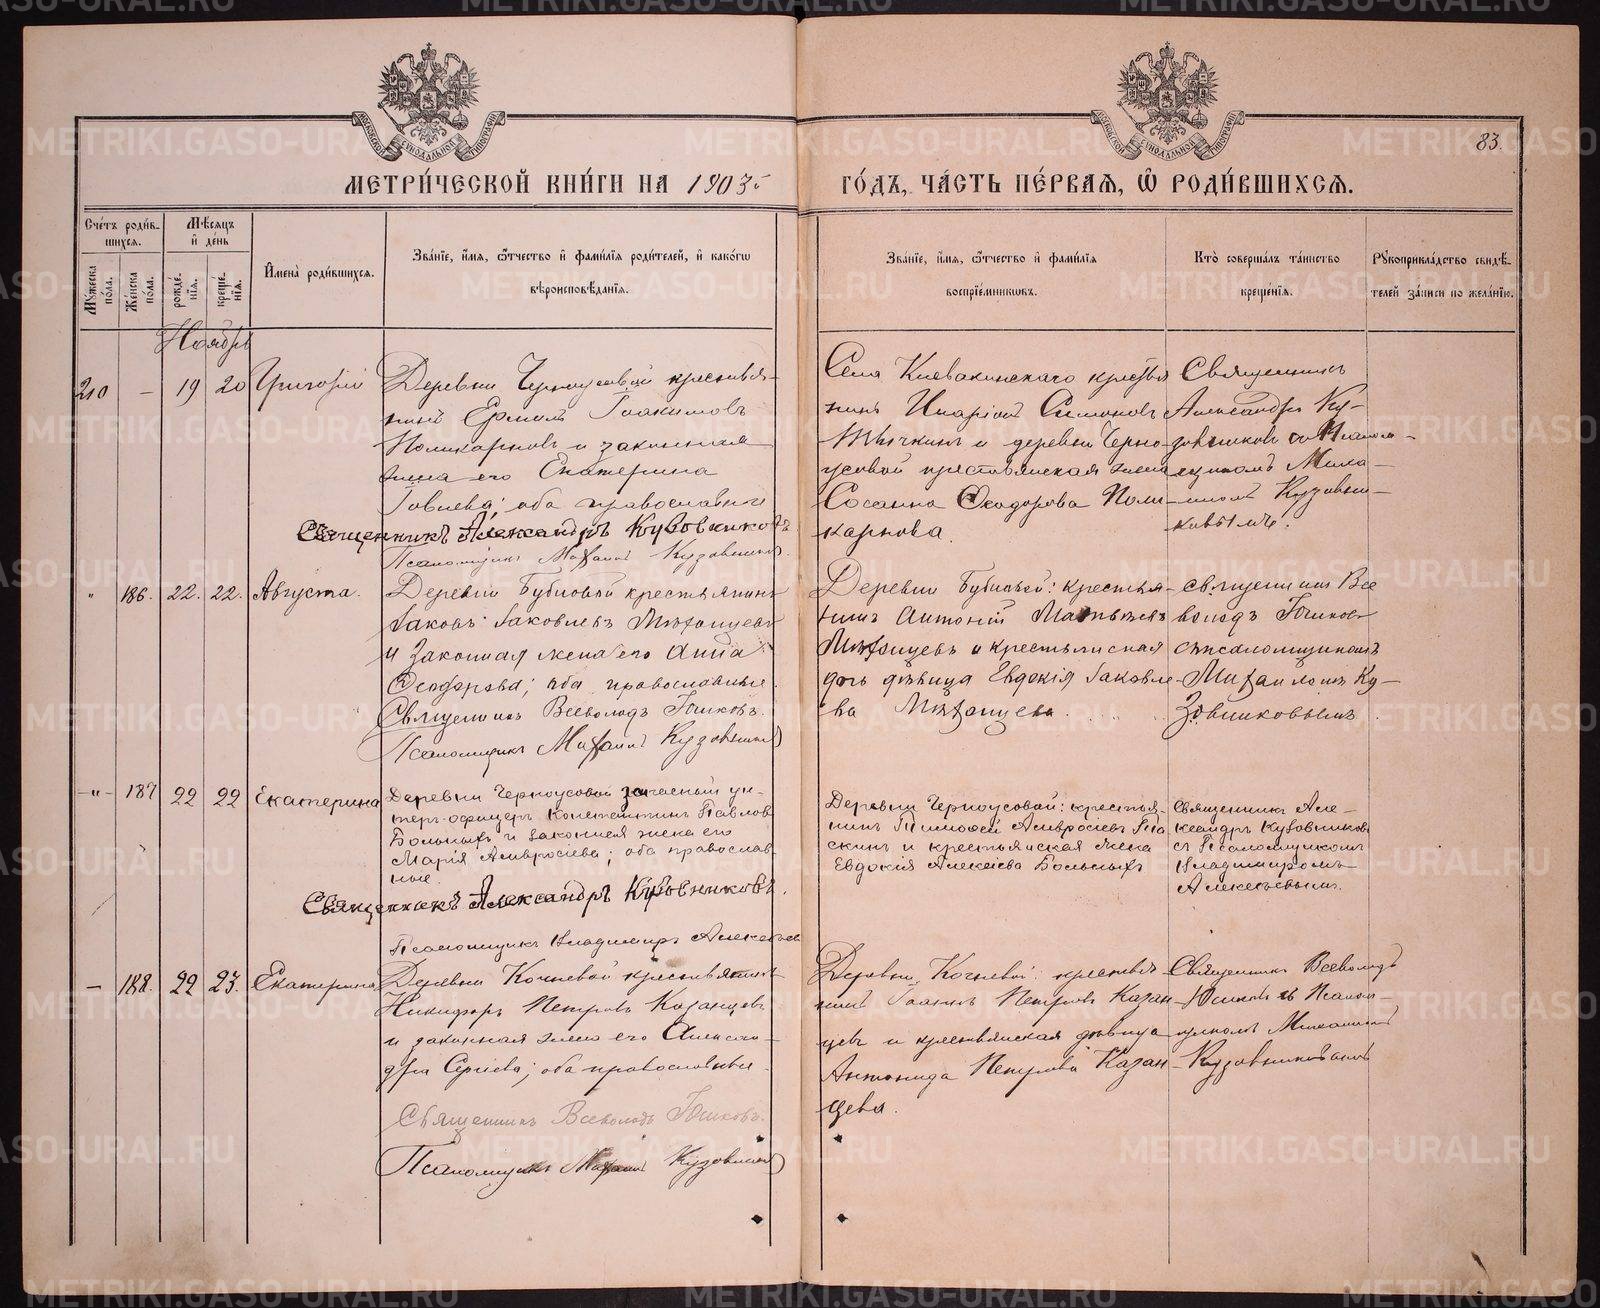 83.
МЕТРИ́ЧЕСКОЙ КНИ́ГИ НА 1903
ГО́ДЪ, ЧА́СТЬ ПЕ́РВАѦ, Ѡ҆ РОДИ́ВШИХСѦ.
Сче́тъ роди́в-
шихсѧ.
Мꙋ́жеска по́ла.
Же́нска по́ла.
Мѣ́сѧцъ и҆ де́нь
рожде́-
нїѧ.
креще́-
нїѧ.
И҆мена̀ роди́вшихсѧ.
Зва́нїе, и҆́мѧ, ѻ҆́тчество и҆ фами́лїѧ роди́телей, и҆ како́гѡ
вѣроисповѣ́данїѧ.
Зва́нїе, и҆́мѧ, ѻ҆́тчество и҆ фами́лїѧ
воспрїе́мникѡвъ.
Кто̀ соверша́лъ та́инство
креще́нїѧ.
Рꙋкоприкла́дство свидѣ́-
телей за́писи по жела́нїю.
Ноябрь
210 — 19 20 Григорій
Деревни Черноусовой крестья-
нинъ Ермилъ Іоакимовъ
Поликарповъ и законная
жена его Екатерина
Іовлева; оба православные
Священникъ Александръ Кузовниковъ
Псаломщикъ Михаилъ Кузовников
Села Клевакинскаго крестья
нинъ Иларіон Симонов
Тычкинъ и деревни Черно-
усовой крестьянская жена
Сосанна Ѳеодорова Поли
карпова.
Священникъ
Александръ Ку-
зовниковъ съ Псалом-
щикомъ Миха-
иломъ Кузовни-
ковымъ.
" 186. 22. 22. Августа.
Деревни Бубновой крестьянинъ
Іаковъ Іаковлевъ Мѣхонцевъ
и законная жена его Анна
Ѳеодорова; оба православные.
Священникъ Всеволодъ Юшковъ.
Псаломщикъ Михаилъ Кузовников
Деревни Бубновой: крестья-
нинъ Антоній Матвѣевъ
Мѣхонцевъ и крестьянская
дочь дѣвица Евдокія Іаковле-
ва Мѣхонцева.
Священникъ Все
володъ Юшков
съ псаломщикомъ
Михаиломъ Ку-
зовниковымъ.
—"— 187 22 22 Екатерина
Деревни Черноусовой запасный ун-
теръ-офицеръ Константинъ Павлов
Больныхъ и законная жена его
Марія Амвросіева; оба православ-
ные.
Священникъ Александръ Кузовниковъ.
Псаломщикъ Владимиръ Алексѣев
Деревни Черноусовой: крестья-
нинъ Тимофей Амвросіевъ Па
скинъ и крестьянская жена
Евдокія Алексіева Больныхъ
Священникъ Але-
ксандръ Кузовников
съ Псаломщикомъ
Владимиромъ
Алексѣевымъ.
— 188. 22 23. Екатерина
Деревни Кочневой крестьянинъ
Никифоръ Петровъ Казанцевъ
и законная жена его Алексан-
дра Сергіева; оба православные.
Священникъ Всеволодъ Юшковъ.
Псаломщикъ Михаилъ Кузовников
Деревни Кочневой: крестья-
нинъ Іоаннъ Петровъ Казан-
цевъ и крестьянская дѣвица
Антонида Петрова Казан-
цева.
Священникъ Всеволодъ
Юшковъ съ Псалом-
щикомъ Михаиломъ
Кузовниковымъ
METRIKI.GASO-URAL.RU